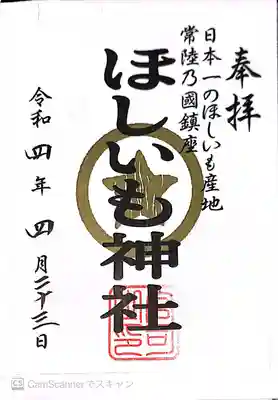 奉拝
日本一のほしいも産地
常陸乃國鎮座
ほしいも神社
令和四年四月二十三日
CS CamScannerでスキャン